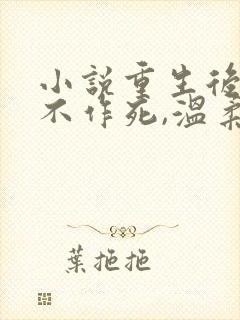 小說重生後
不作死,溫柔
葉拖拖